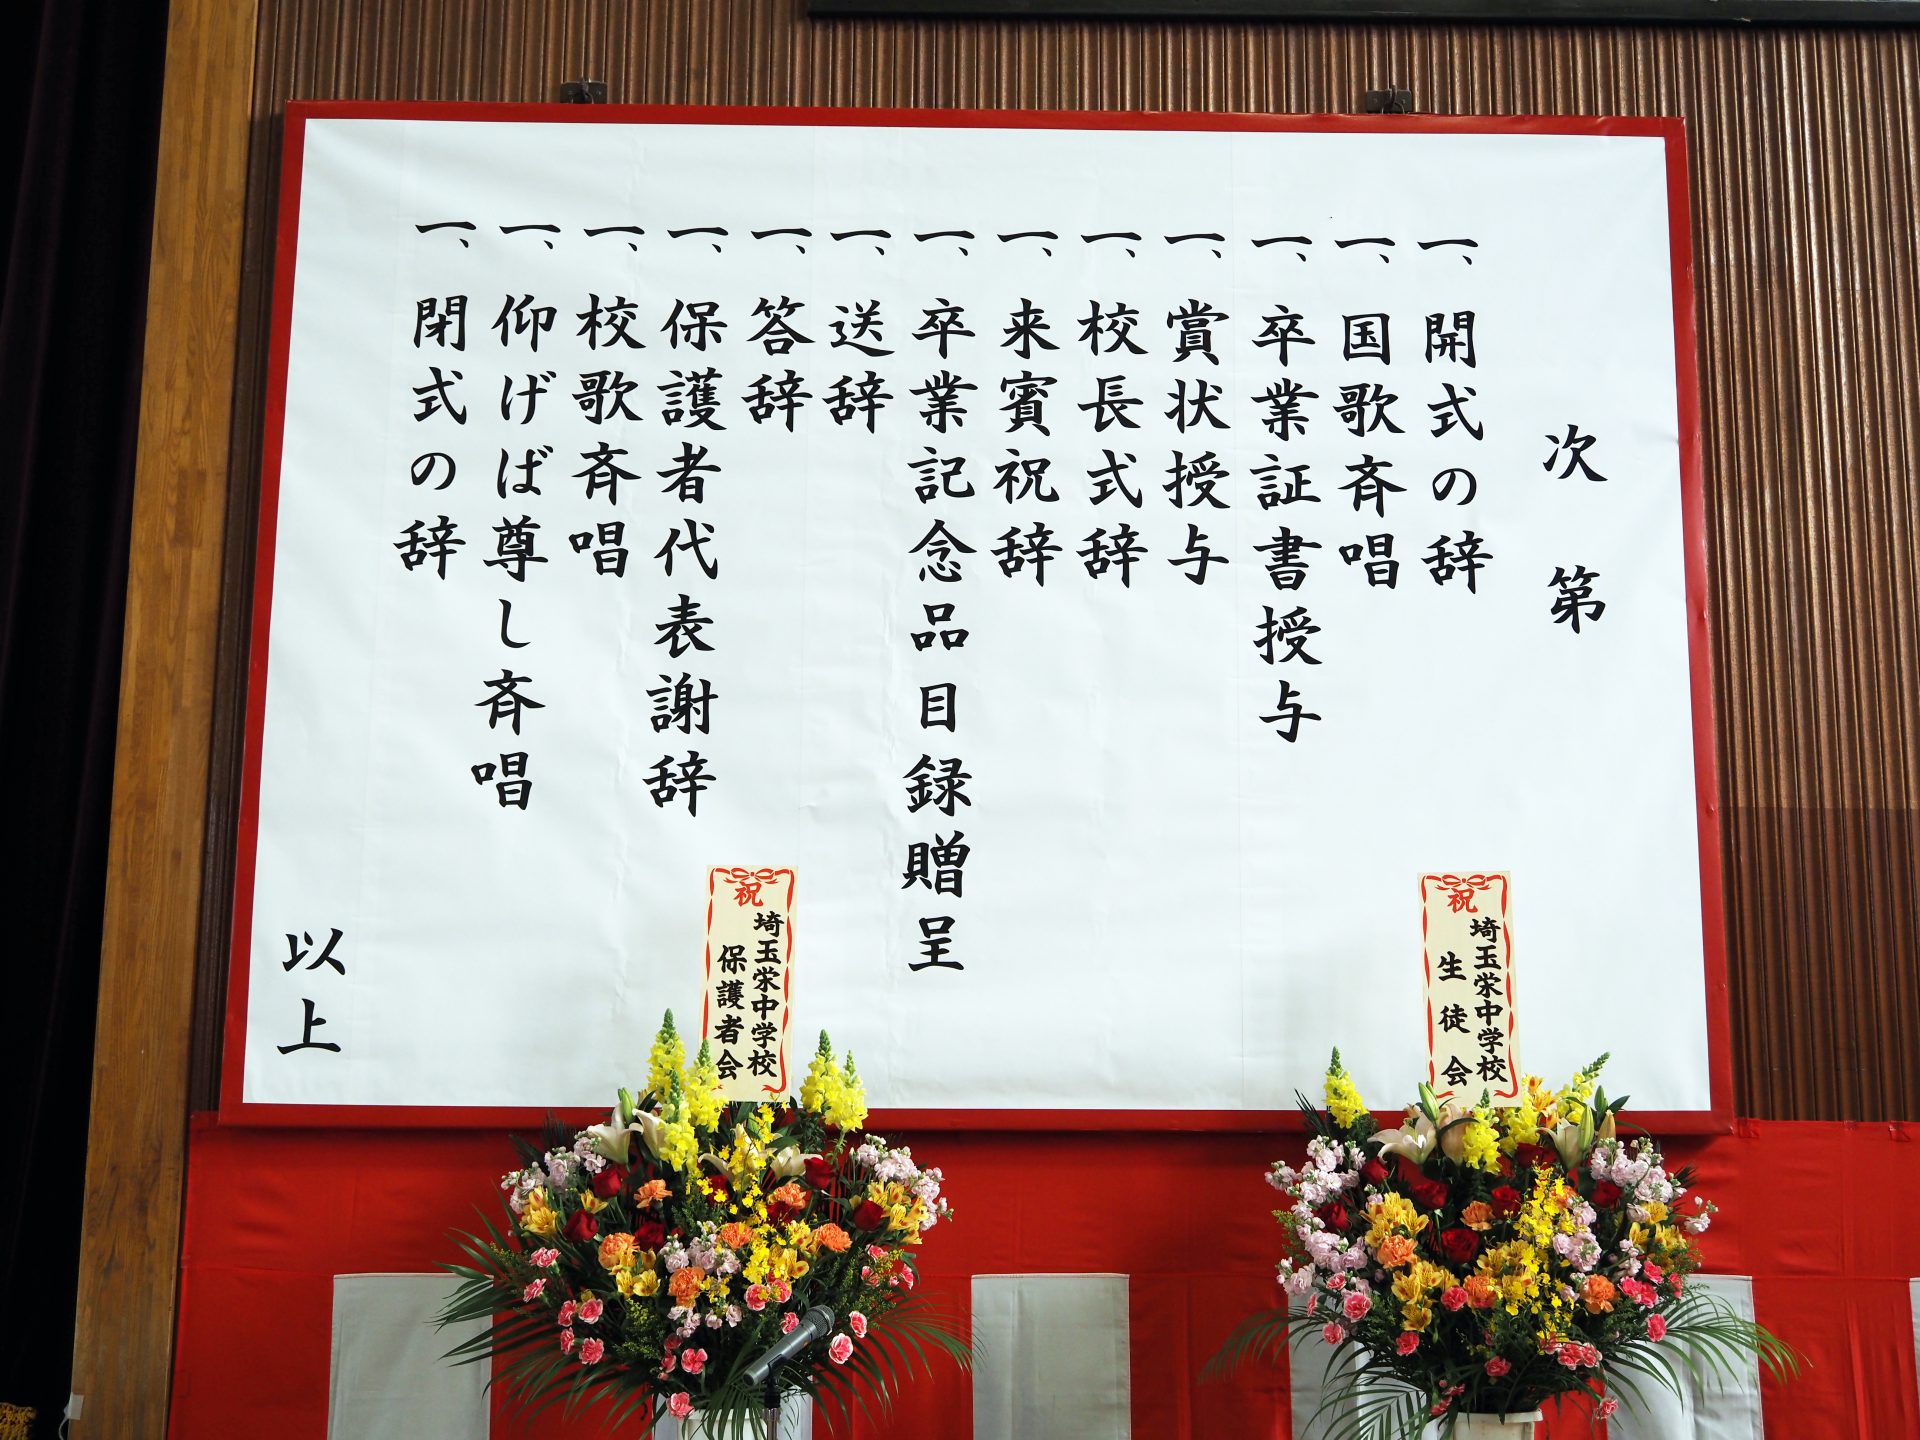 次第
一、開式の辞
一、国歌斉唱
一、卒業証書授与
一、賞状授与
一、校長式辞
一、来賓祝辞
一、卒業記念品目録贈呈
一、送辞
一、答辞
一、保護者代表謝辞
一、校歌斉唱
一、仰げば尊し斉唱
一、閉式の辞
以上
祝
埼玉栄中学校
生徒会
祝
埼玉栄中学校
保護者会